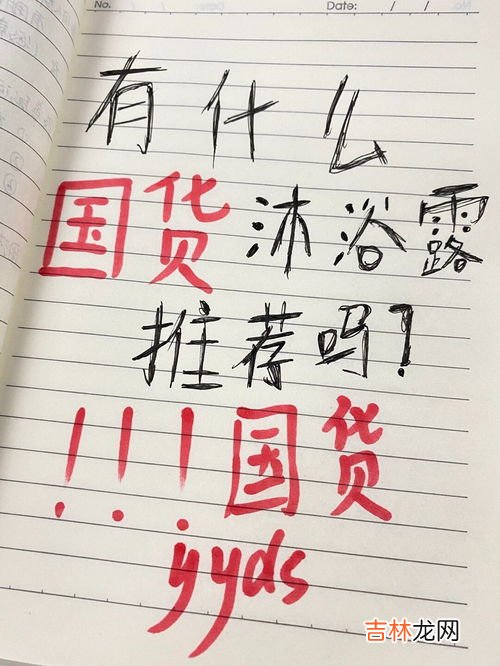 No.
Date: / /
有什么
国货沐浴露
推荐吗?
!!!国货
yyds
吉林龙网